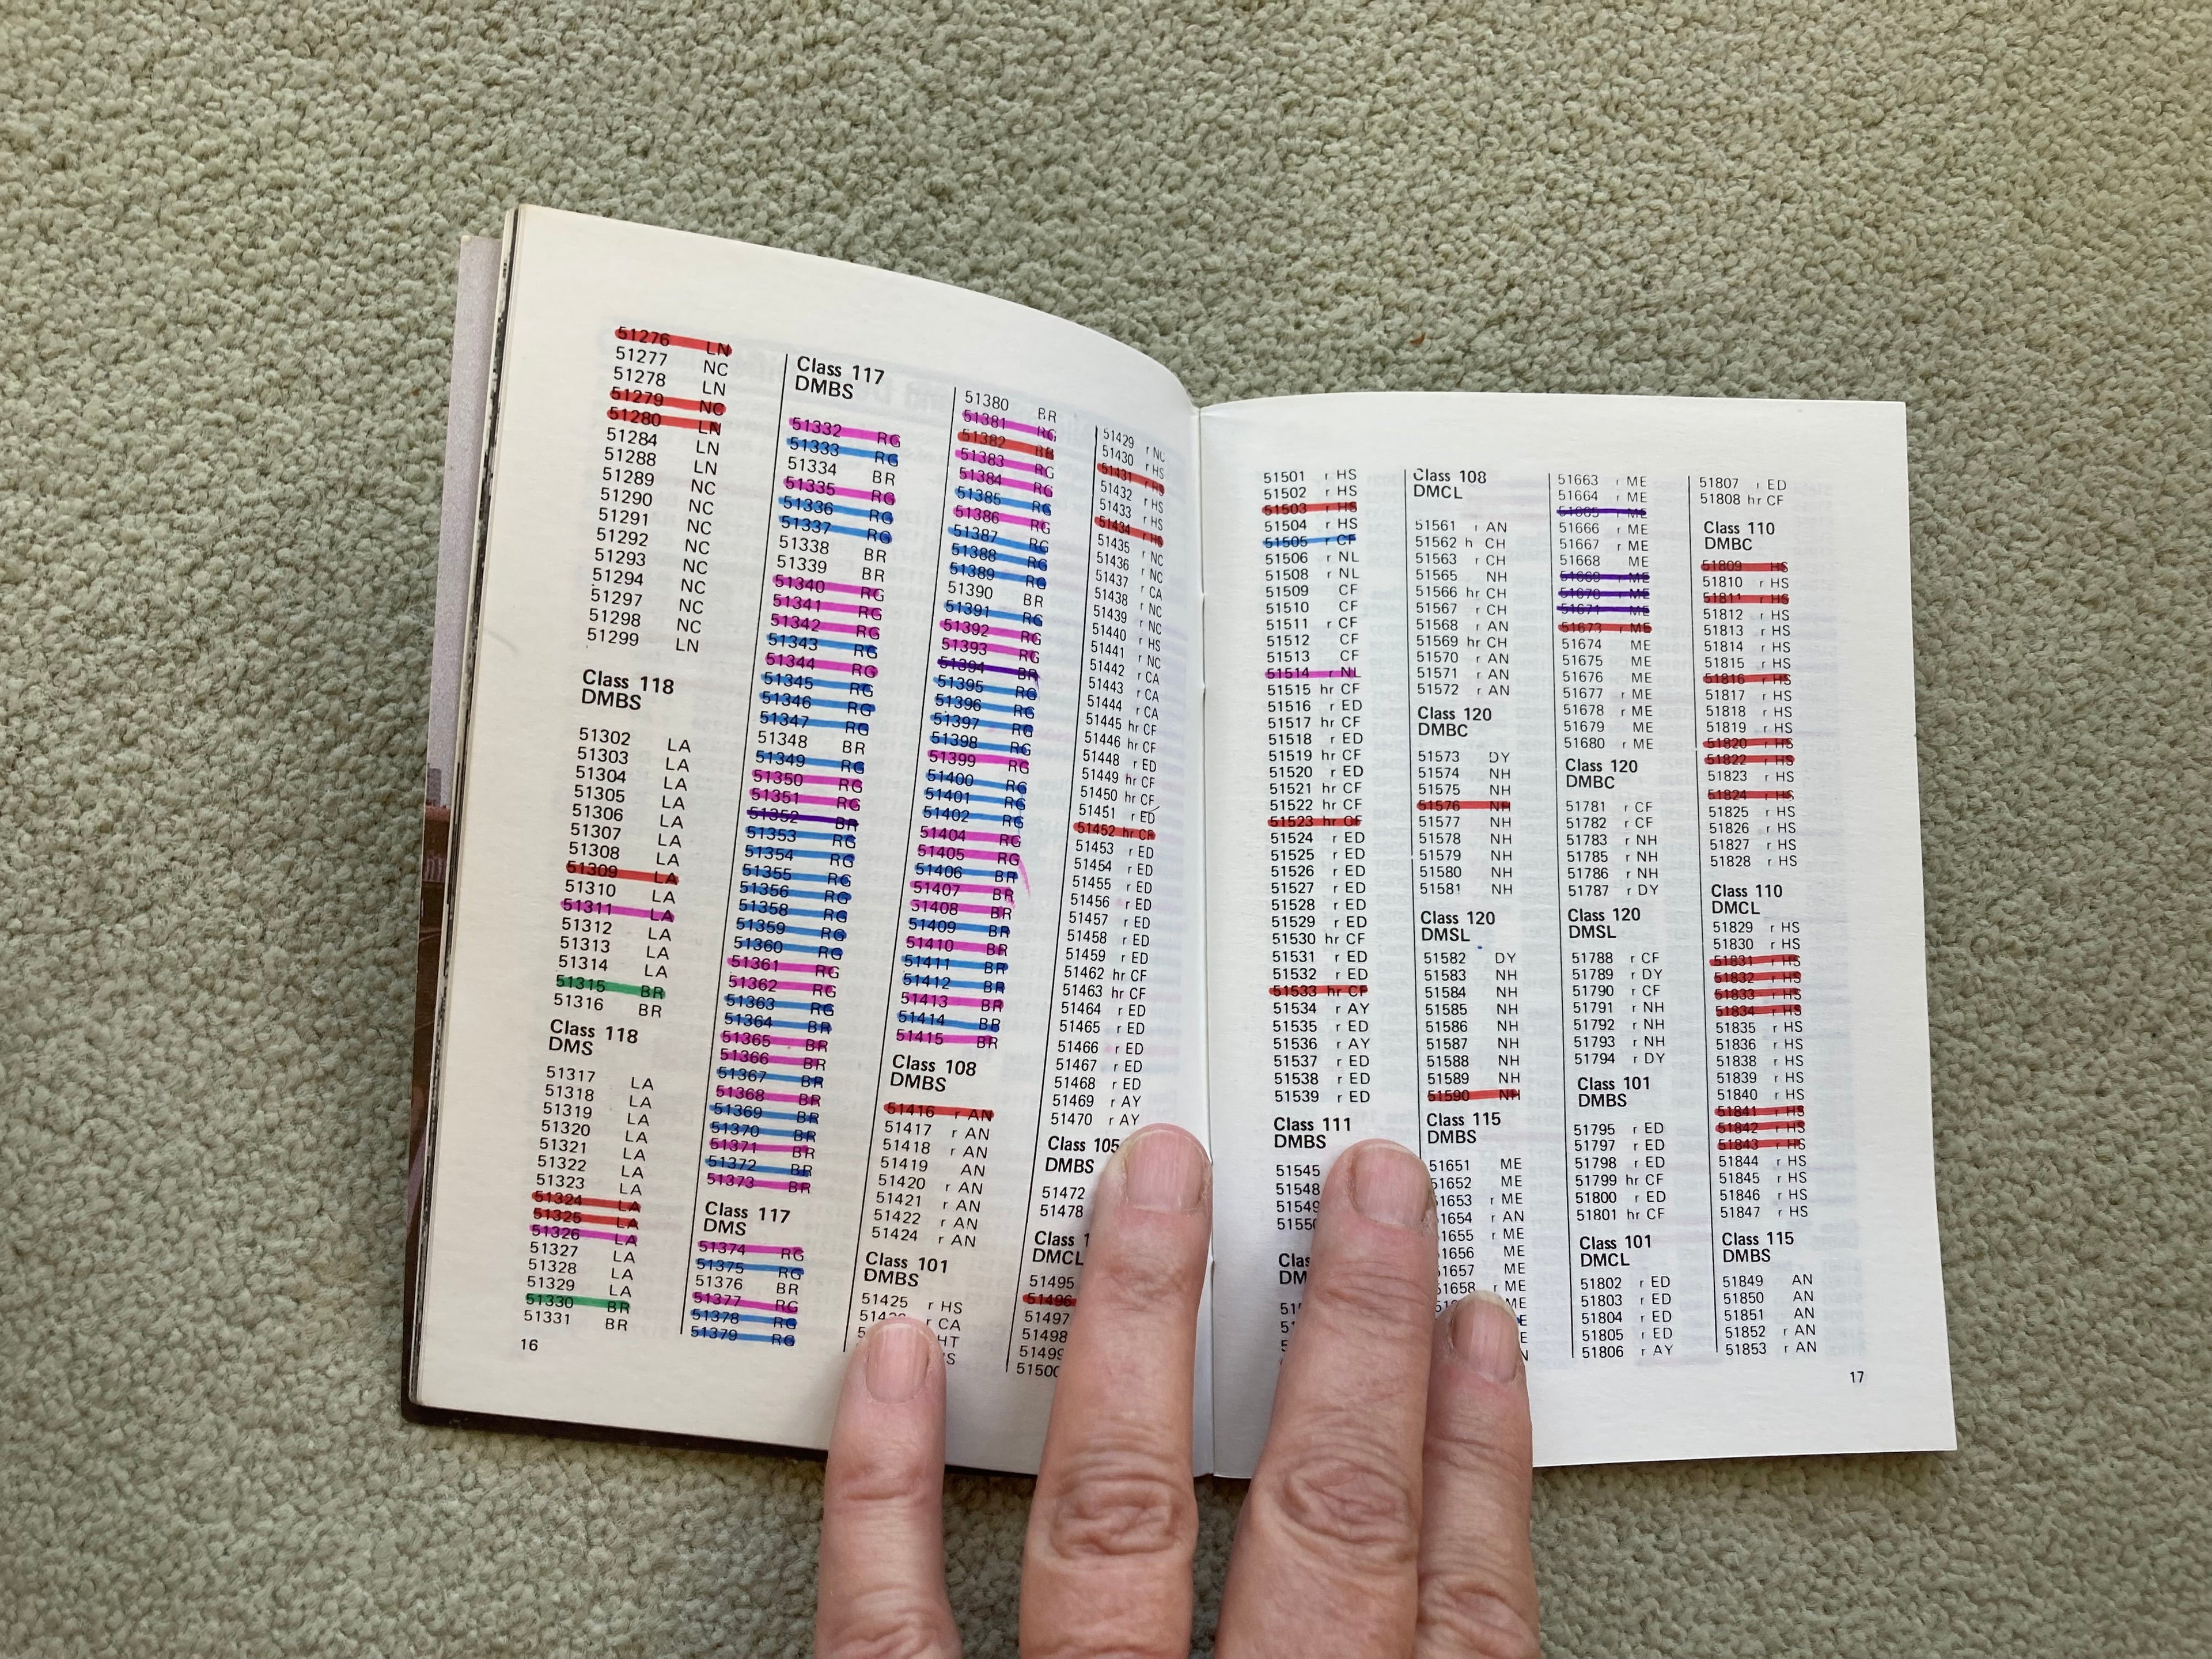 51276 LN
51277 NC
51278 LN
51279 NC
51280 LN
51284 LN
51288 LN
51289 NC
51290 NC
51291 NC
51292 NC
51293 NC
51294 NC
51297 NC
51298 NC
51299 LN
Class 118
DMBS
51302 LA
51303 LA
51304 LA
51305 LA
51306 LA
51307 LA
51308 LA
51309 LA
51310 LA
51311 LA
51312 LA
51313 LA
51314 LA
51315 BR
51316 BR
Class 118
DMS
51317 LA
51318 LA
51319 LA
51320 LA
51321 LA
51322 LA
51323 LA
51324 LA
51325 LA
51326 LA
51327 LA
51328 LA
51329 LA
51330 BR
51331 BR
16
Class 117
DMBS
51332 RG
51333 RG
51334 BR
51335 RG
51336 RG
51337 RG
51338 BR
51339 BR
51340 RG
51341 RG
51342 RG
51343 RG
51344 RG
51345 RG
51346 RG
51347 RG
51348 BR
51349 RG
51350 RG
51351 RG
51352 BR
51353 RG
51354 RG
51355 RG
51356 RG
51358 RG
51359 RG
51360 RG
51361 RG
51362 RG
51363 RG
51364 BR
51365 BR
51366 BR
51367 BR
51368 BR
51369 BR
51370 BR
51371 BR
51372 BR
51373 BR
Class 117
DMS
51374 RG
51375 RG
51376 BR
51377 RG
51378 RG
51379 RG
51380 BR
51381 RG
51382 BR
51383 RG
51384 RG
51385 RG
51386 RG
51387 RG
51388 RG
51389 RG
51390 BR
51391 RG
51392 RG
51393 RG
51394 BR
51395 RG
51396 RG
51397 RG
51398 RG
51399 RG
51400 RG
51401 RG
51402 RG
51404 RG
51405 RG
51406 BR
51407 BR
51408 BR
51409 BR
51410 BR
51411 BR
51412 BR
51413 BR
51414 BR
51415 BR
Class 108
DMBS
51416 r AN
51417 r AN
51418 r AN
51419 AN
51420 r AN
51421 r AN
51422 r AN
51424 r AN
Class 101
DMBS
51425 r HS
r CA
51429 r NC
51430 r HS
51431 r HS
51432 r HS
51433 r HS
51434 r HS
51435 r NC
51436 r NC
51437 r CA
51438 r NC
51439 r NC
51440 r HS
51441 r NC
51442 r CA
51443 r CA
51444 r CA
51445 hr CF
51446 hr CF
51448 r ED
51449 hr CF
51450 hr CF
51451 r ED
51452 hr CF
51453 r ED
51454 r ED
51455 r ED
51456 r ED
51457 r ED
51458 r ED
51459 r ED
51462 hr CF
51463 hr CF
51464 r ED
51465 r ED
51466 r ED
51467 r ED
51468 r ED
51469 r AY
51470 r AY
Class 105
DMBS
51472
51478
Class
DMCL
51495
51496
51497
51498
51499
51500
51501 r HS
51502 r HS
51503 r HS
51504 r HS
51505 r CF
51506 r NL
51508 r NL
51509 CF
51510 CF
51511 r CF
51512 CF
51513 CF
51514 r NL
51515 hr CF
51516 r ED
51517 hr CF
51518 r ED
51519 hr CF
51520 r ED
51521 hr CF
51522 hr CF
51523 hr CF
51524 r ED
51525 r ED
51526 r ED
51527 r ED
51528 r ED
51529 r ED
51530 hr CF
51531 r ED
51532 r ED
51533 hr CF
51534 r AY
51535 r ED
51536 r AY
51537 r ED
51538 r ED
51539 r ED
Class 111
DMBS
51545
51548
51549
51550
Class 108
DMCL
51561 r AN
51562 h CH
51563 r CH
51565 NH
51566 hr CH
51567 r CH
51568 r AN
51569 hr CH
51570 r AN
51571 r AN
51572 r AN
Class 120
DMBC
51573 DY
51574 NH
51575 NH
51576 NH
51577 NH
51578 NH
51579 NH
51580 NH
51581 NH
Class 120
DMSL
51582 DY
51583 NH
51584 NH
51585 NH
51586 NH
51587 NH
51588 NH
51589 NH
51590 NH
Class 115
DMBS
51651 ME
51652 ME
51653 r ME
51654 r AN
51655 r ME
51656 ME
51657 ME
51658 r ME
ME
51663 r ME
51664 r ME
51665 r ME
51666 r ME
51667 r ME
51668 ME
51669 r ME
51670 r ME
51671 r ME
51673 r ME
51674 ME
51675 ME
51676 ME
51677 r ME
51678 r ME
51679 ME
51680 r ME
Class 120
DMBC
51781 r CF
51782 r CF
51783 r NH
51785 r NH
51786 r NH
51787 r DY
Class 120
DMSL
51788 r CF
51789 r DY
51790 r CF
51791 r NH
51792 r NH
51793 r NH
51794 r DY
Class 101
DMBS
51795 r ED
51797 r ED
51798 r ED
51799 hr CF
51800 r ED
51801 hr CF
Class 101
DMCL
51802 r ED
51803 r ED
51804 r ED
51805 r ED
51806 r AY
51807 r ED
51808 hr CF
Class 110
DMBC
51809 HS
51810 r HS
51811 r HS
51812 r HS
51813 r HS
51814 r HS
51815 r HS
51816 r HS
51817 r HS
51818 r HS
51819 r HS
51820 r HS
51822 r HS
51823 r HS
51824 r HS
51825 r HS
51826 r HS
51827 r HS
51828 r HS
Class 110
DMCL
51829 r HS
51830 r HS
51831 r HS
51832 r HS
51833 r HS
51834 r HS
51835 r HS
51836 r HS
51838 r HS
51839 r HS
51840 r HS
51841 r HS
51842 r HS
51843 r HS
51844 r HS
51845 r HS
51846 r HS
51847 r HS
Class 115
DMBS
51849 AN
51850 AN
51851 AN
51852 r AN
51853 r AN
17